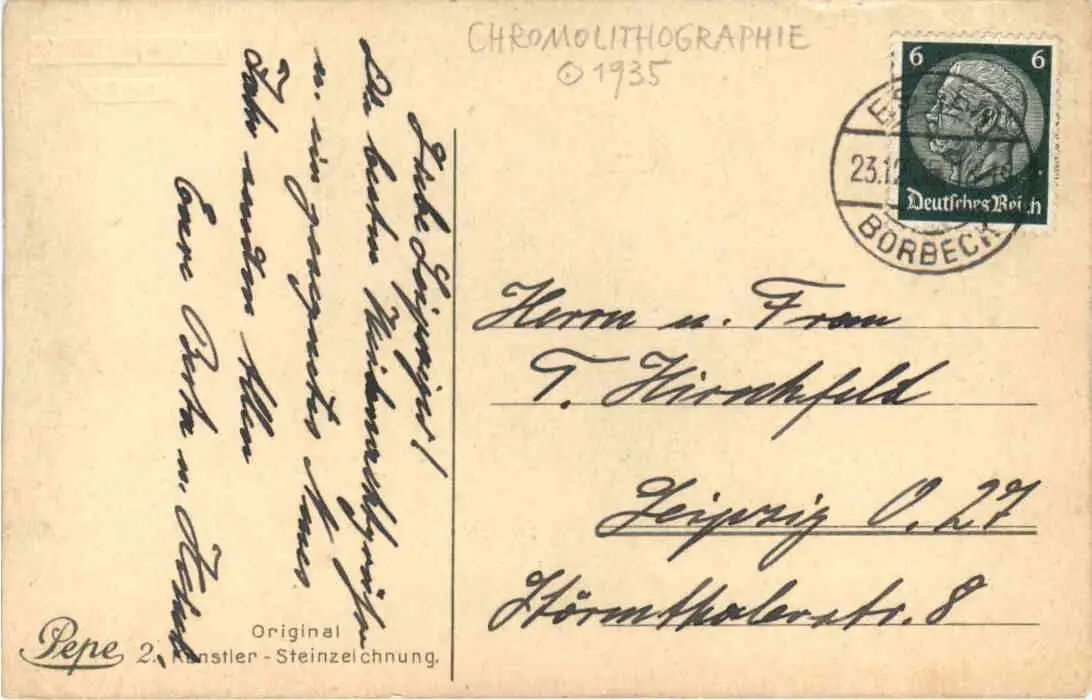 CHROMOLITHOGRAPHIE
⊙ 1935
6 6
Deutsches Reich
ESSEN
23.12.
BORBECK
Liebe Leipziger!
Die besten Weihnachtsgrüße
u. ein gesegnetes Neues
Jahr senden Allen
Eure Berta u.
Herrn u. Frau
T. Hirschfeld
Leipzig O. 27
Störmthalerstr. 8
Pepe 2.
Original
Künstler - Steinzeichnung.